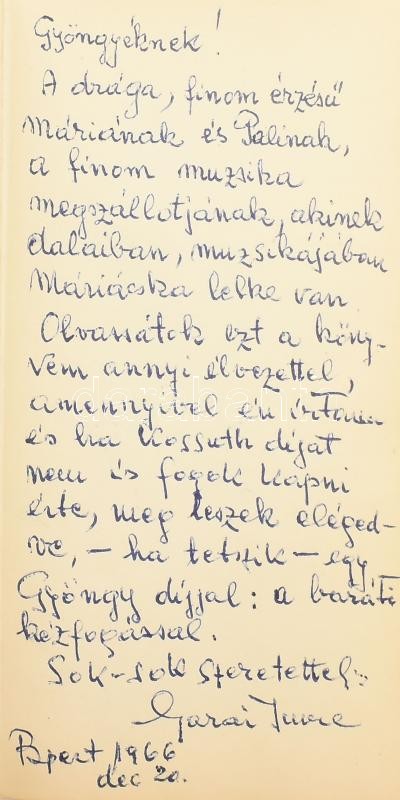 Gyöngyéknek!
A drága, finom érzésű
Máriának és Palinak,
a finom muzsika
megszállotjának, akinek
dalaiban, muzsikájában
Máriácska lelke van
Olvassátok ezt a köny-
vem annyi élvezettel,
amennyivel én írtam
és ha Kossuth díjat
nem is fogok kapni
érte, meg leszek eléged-
ve, - ha tetszik - egy
Gyöngy díjjal: a baráti
kézfogással.
Sok-sok szeretettel:
Garai Imre
Bpest 1966
dec 20.